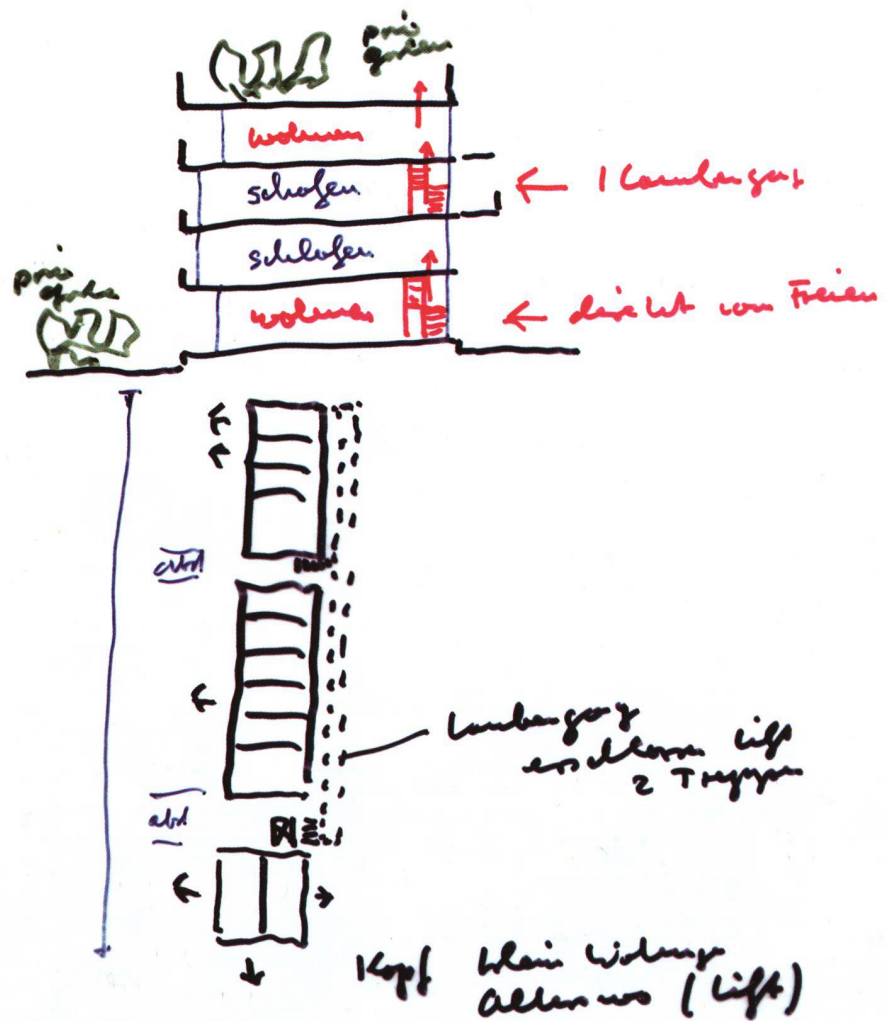 priv
garten
wohnen
schlafen
← 1 Laubengang
schlafen
priv
garten
wohnen
← direkt von Freien
abst
Laubengang
erschlossen Lift
2 Treppen
abst
Kopf klein Wohnunge
(Lift)